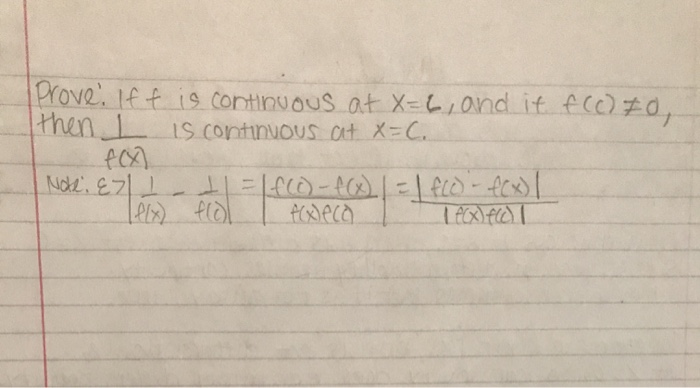 Prove: If f is continuous at x=c, and if f(c) ≠ 0,
then 1/f(x) is continuous at x=c.
Note: ε > |1/f(x) - 1/f(c)| = |(f(c) - f(x))/(f(x)f(c))| = |f(c) - f(x)|/|f(x)f(c)|